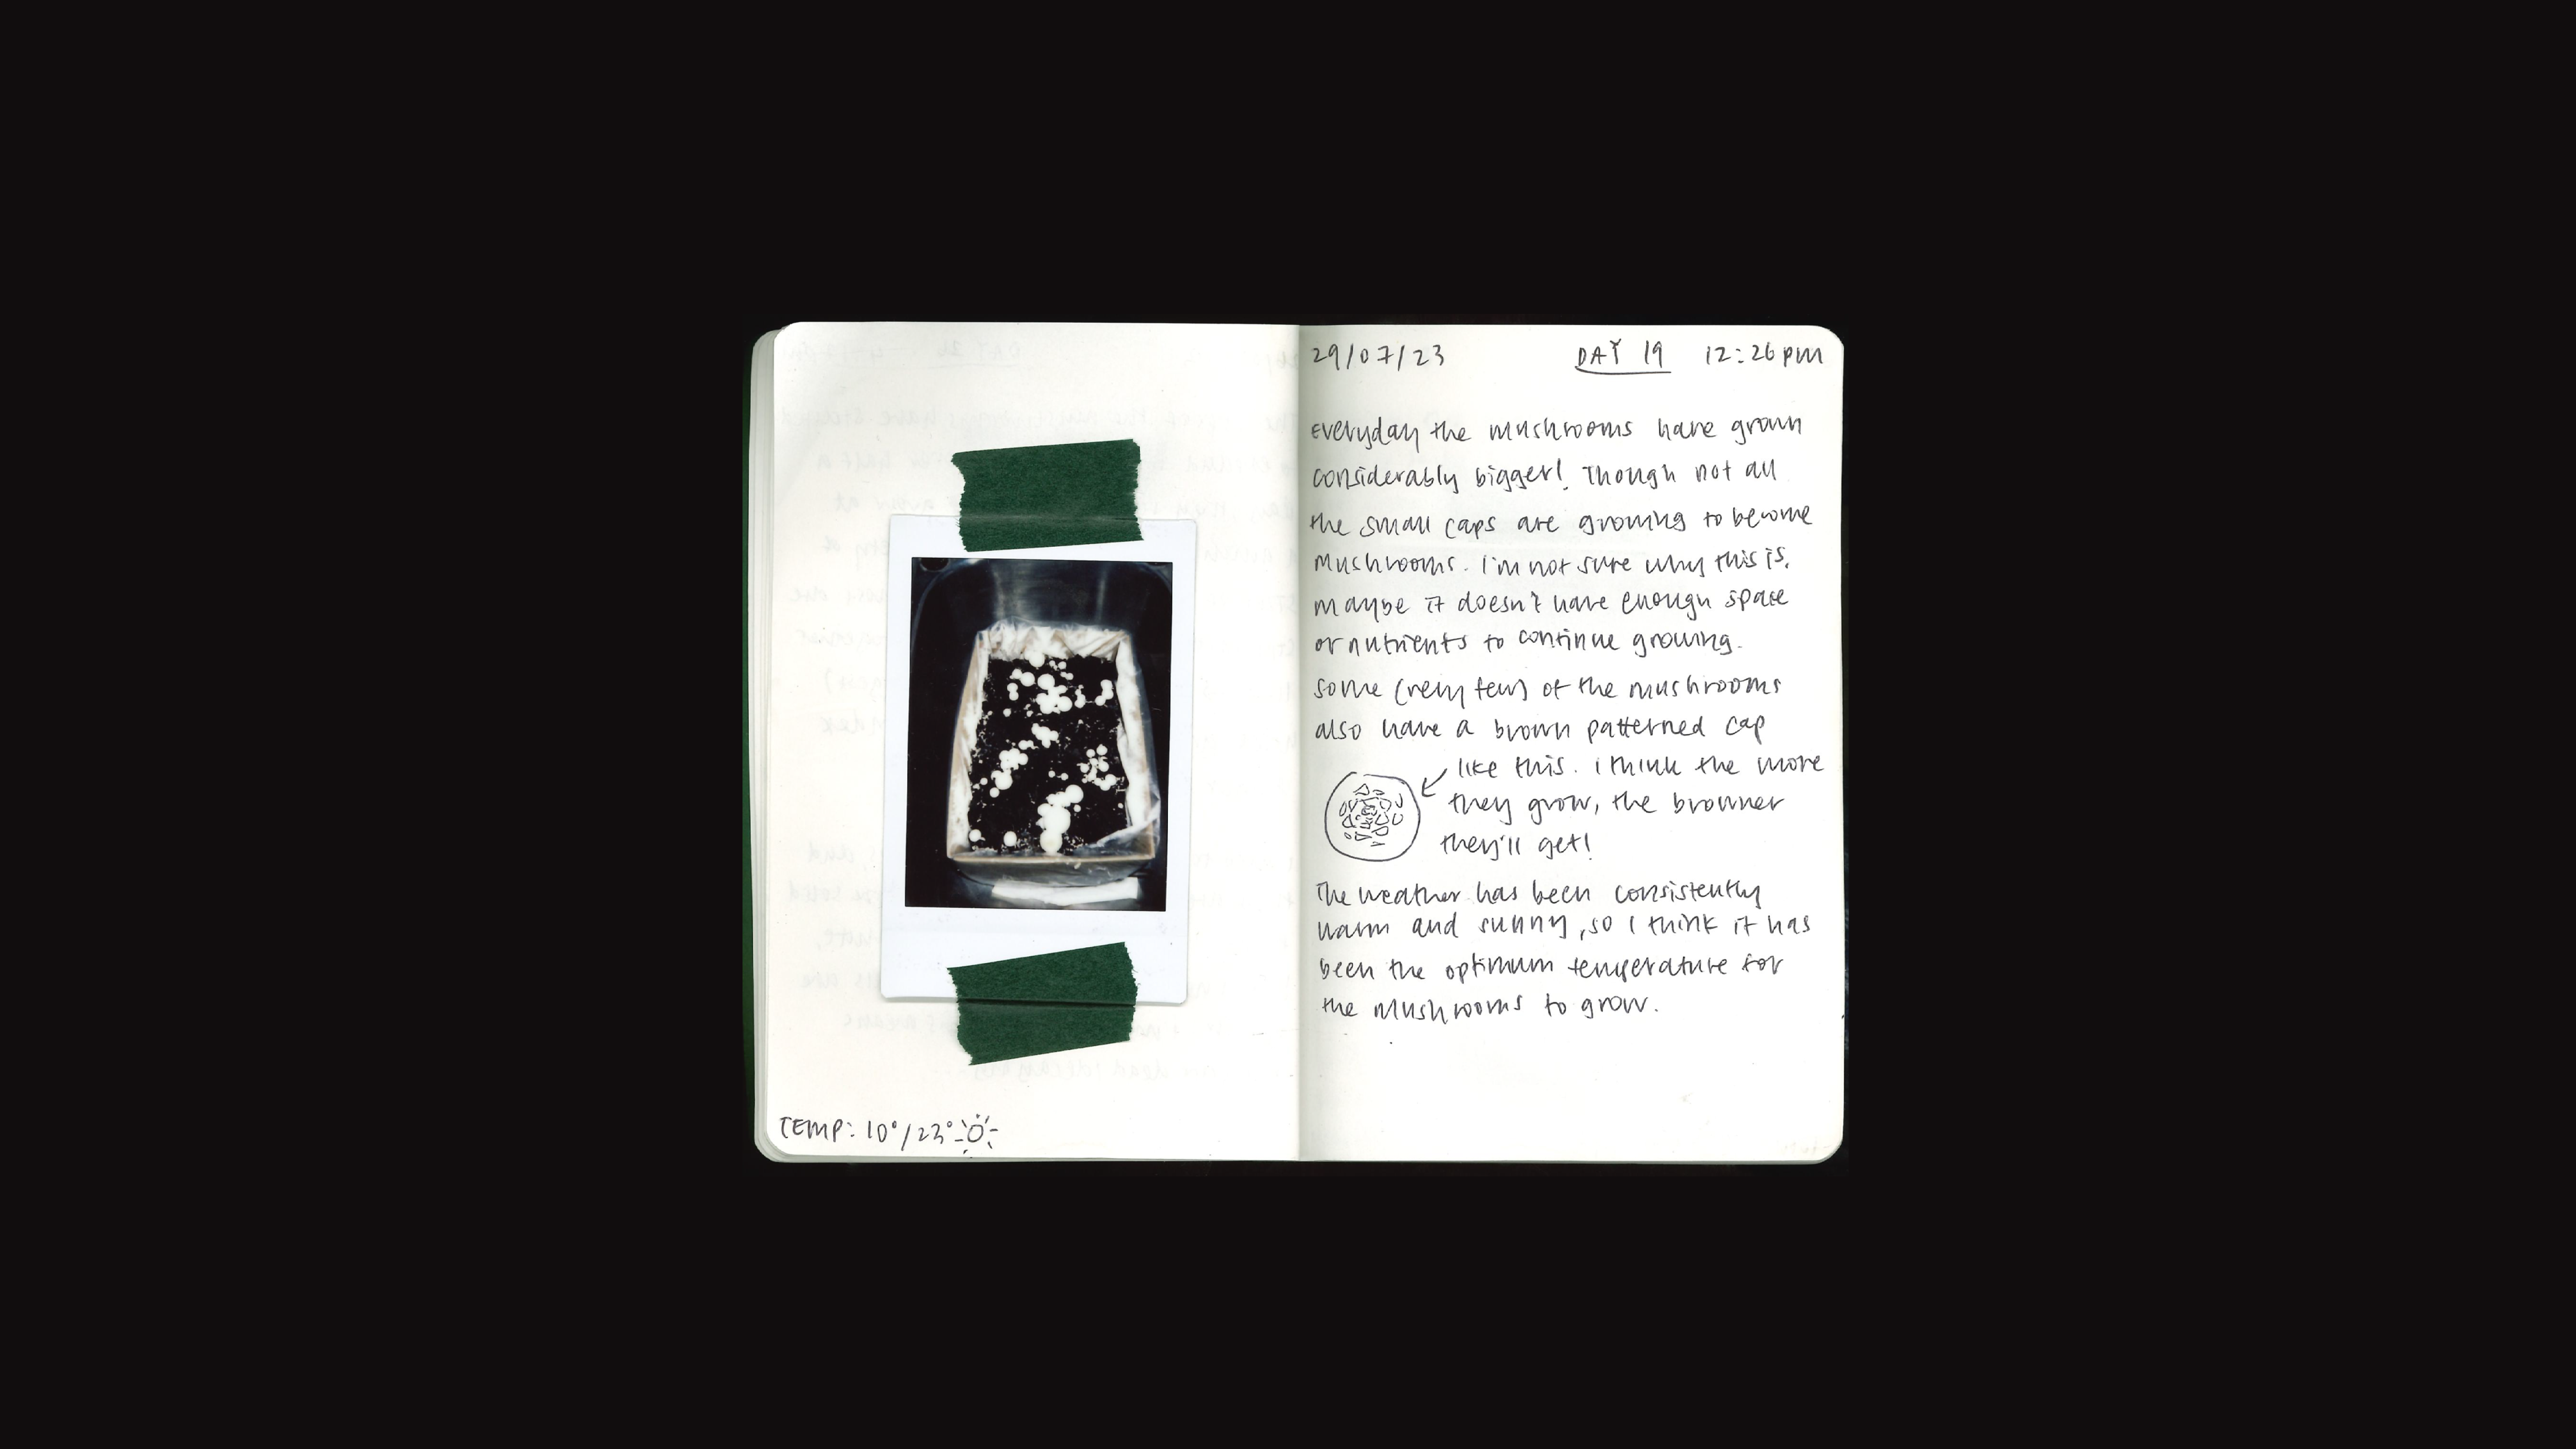 TEMP: 10°/23°
29/07/23 DAY 19 12:26pm
Everyday the mushrooms have grown
considerably bigger! Though not all
the small caps are growing to become
mushrooms. I'm not sure why this is,
maybe it doesn't have enough space
or nutrients to continue growing.
Some (very few) of the mushrooms
also have a brown patterned cap
like this. I think the more
they grow, the browner
they'll get!
The weather has been consistently
warm and sunny, so I think it has
been the optimum temperature for
the mushrooms to grow.